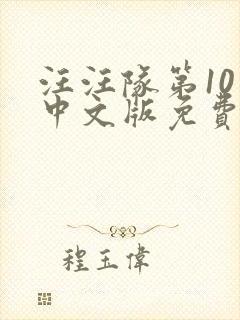 汪汪隊第10
中文版免費
程玉偉